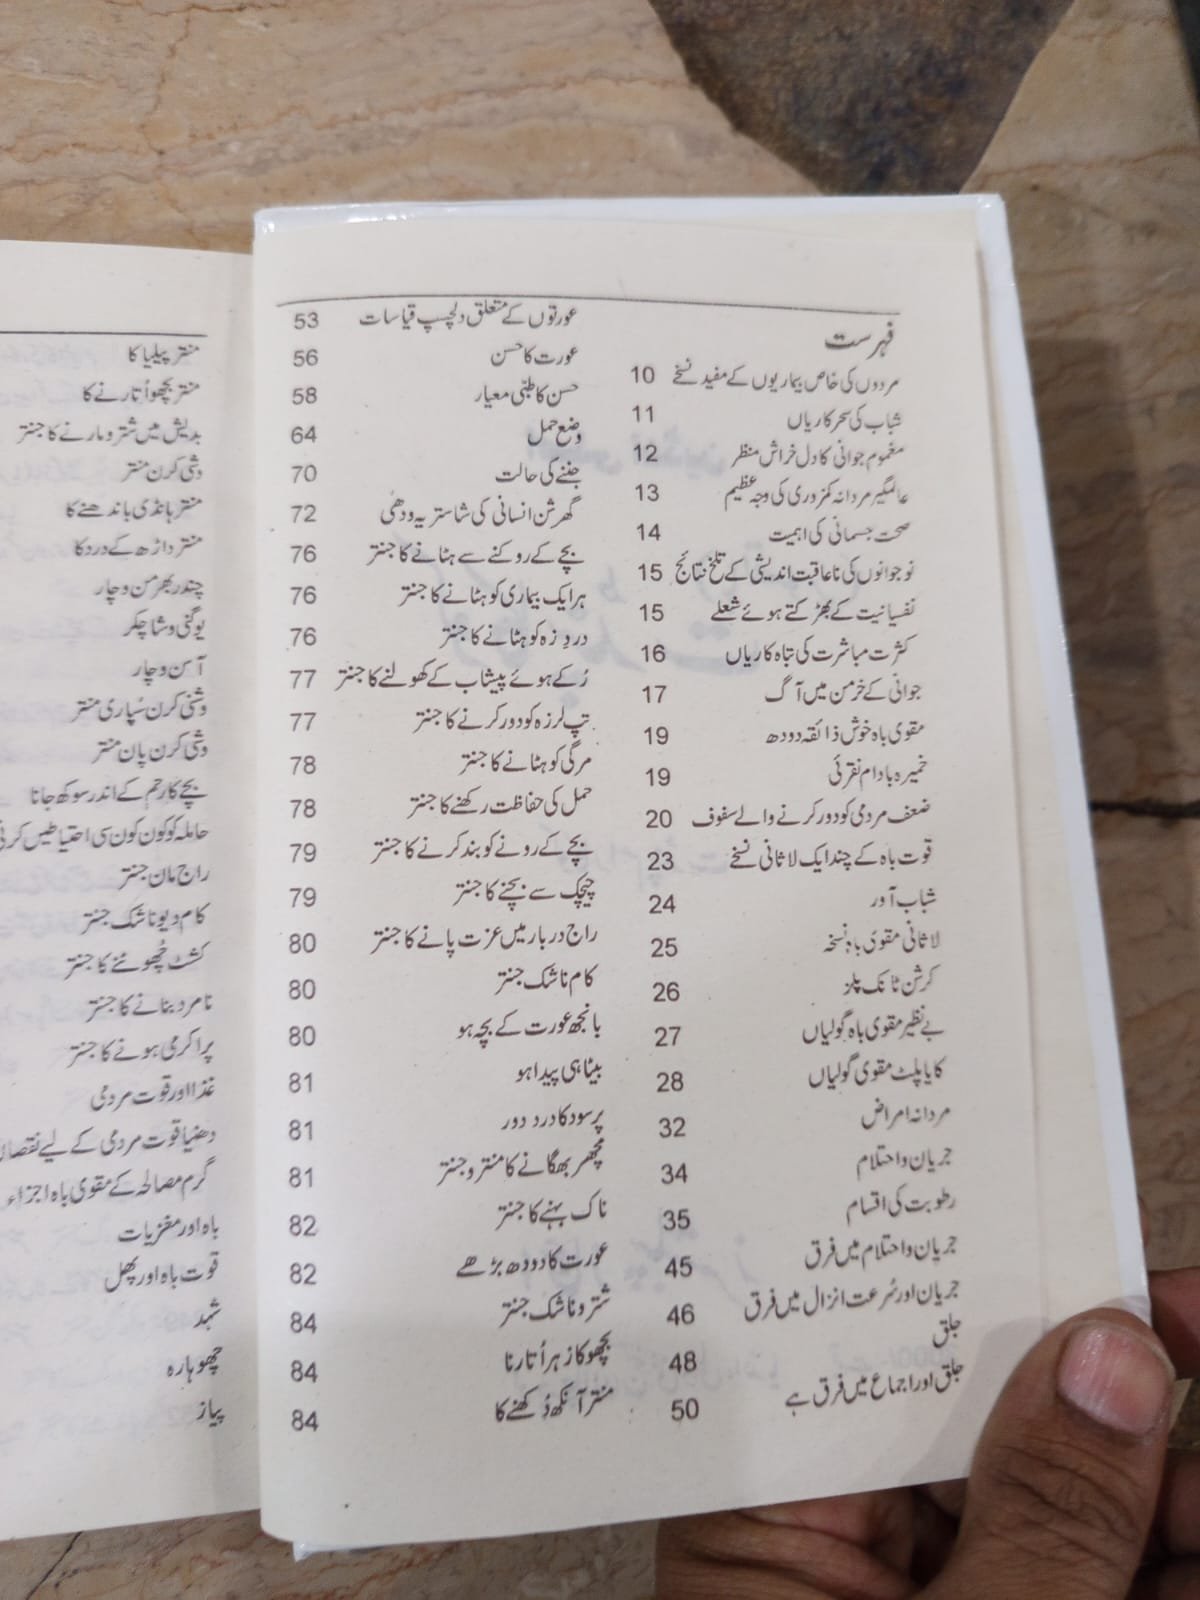 فہرست
مردوں کی خاص بیماریوں کے مفید نسخے 10
شباب کی سحر کاریاں 11
مغموم جوانی کا دل خراش منظر 12
عالمگیر مردانہ کمزوری کی وجہ عظیم 13
صحت جسمانی کی اہمیت 14
نوجوانوں کی ناعاقبت اندیشی کے تلخ نتائج 15
نفسیانیت کے بھڑکتے ہوئے شعلے 15
کثرت مباشرت کی تباہ کاریاں 16
جوانی کے خرمن میں آگ 17
مقوی باہ خوش ذائقہ دودھ 19
خمیرہ بادام نقرئی 19
ضعف مردمی کو دور کرنے والے سفوف 20
قوت باہ کے چند ایک لاثانی نسخے 23
شباب آور 24
لاثانی مقوی باہ نسخہ 25
کرشن ٹانک پلز 26
بے نظیر مقوی باہ گولیاں 27
کایا پلٹ مقوی گولیاں 28
مردانہ امراض 32
جریان و احتلام 34
رطوبت کی اقسام 35
جریان و احتلام میں فرق 45
جریان اور سُرعت انزال میں فرق 46
جلق 48
جلق اور اجماع میں فرق ہے 50
عورتوں کے متعلق دلچسپ قیاسات 53
عورت کا حسن 56
حسن کا طبّی معیار 58
وضع حمل 64
جننے کی حالت 70
گھرشن انسانی کی شاستریہ ودھی 72
بچے کے روکنے سے ہٹانے کا جنتر 76
ہر ایک بیماری کو ہٹانے کا جنتر 76
دردِ زہ کو ہٹانے کا جنتر 76
رُکے ہوئے پیشاب کے کھولنے کا جنتر 77
تپ لرزہ کو دور کرنے کا جنتر 77
مرگی کو ہٹانے کا جنتر 78
حمل کی حفاظت رکھنے کا جنتر 78
بچے کے رونے کو بند کرنے کا جنتر 79
چیچک سے بچنے کا جنتر 79
راج دربار میں عزت پانے کا جنتر 80
کام ناشک جنتر 80
بانجھ عورت کے بچہ ہو 80
بیٹا ہی پیدا ہو 81
پرسود کا درد دور 81
مچھر بھگانے کا منتر و جنتر 81
ناک بہنے کا جنتر 82
عورت کا دودھ بڑھے 82
شترو ناشک جنتر 84
بچھو کا زہر اُتارنا 84
منتر آنکھ دُکھنے کا 84
منتر پیلیا کا
منتر بچھو اُتارنے کا
بدیش میں شترو مارنے کا جنتر
وشی کرن منتر
منتر ہانڈی باندھنے کا
منتر داڑھ کے درد کا
چندر بھرمن وچار
یوگنی وشا چکر
آسن وچار
وشنی کرن سُپاری منتر
وشی کرن پان منتر
بچے کا رحم کے اندر سوکھ جانا
حاملہ کو کون کون سی احتیاطیں
راج مان جنتر
کام دیو ناشک جنتر
کشٹ چُھوٹنے کا جنتر
نامرد بنانے کا جنتر
پراکرمی ہونے کا جنتر
غذا اور قوت مردمی
دھنیا قوت مردمی کے لیے
گرم مصالحہ کے مقوی باہ اجزاء
باہ اور مغزیات
قوت باہ اور پھل
شہد
چھوہارہ
پیاز